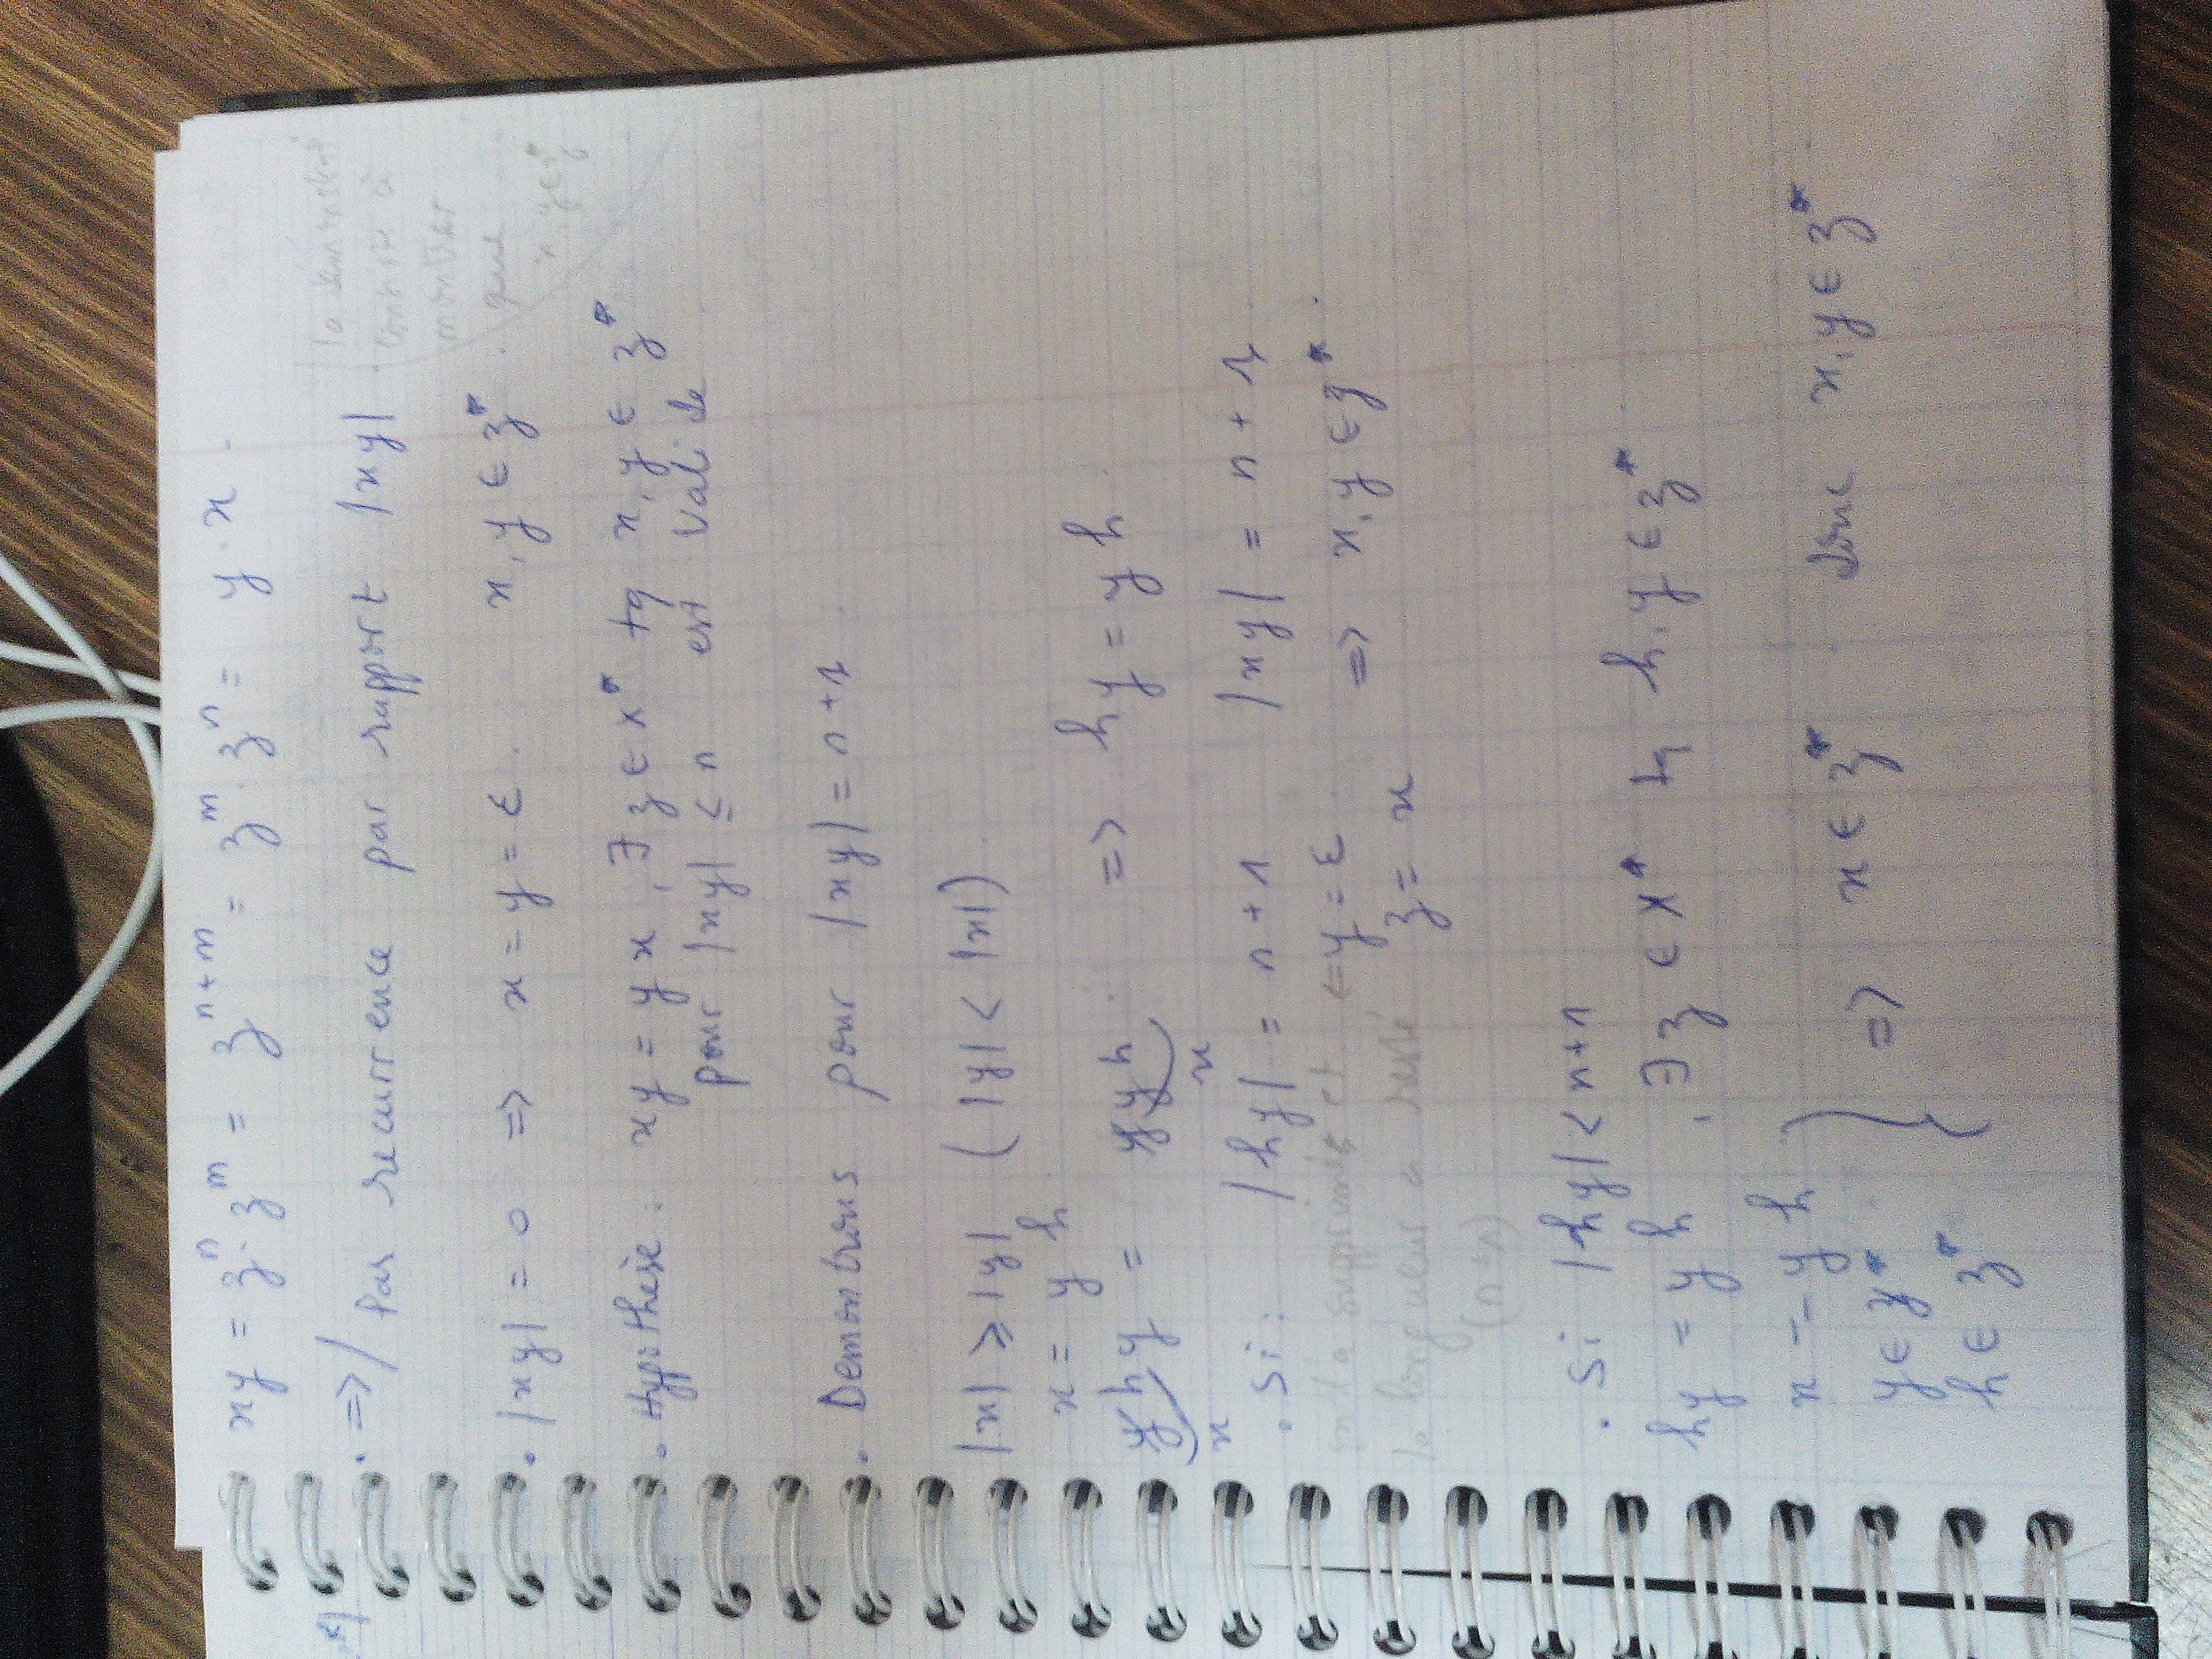 xy = z^n . z^m = z^{n+m} = z^m . z^n = y . x .
. =>/ Par recurrence par rapport |xy| .
la demonstrat
consiste à
montrer
que
x, y ∈ z*
. |xy| = 0 => x = y = ε . x, y ∈ z* .
. Hypothèse : xy = yx , ∃ z ∈ X* tq x, y ∈ z*
pour |xy| ≤ n est valide
. Demontrons pour |xy| = n+1 .
|x| ⩾ |y| ( |y| < |x| ) .
x = y h .
y h y = y y h . => h y = y h .
x x
. Si : |hy| = n + 1 |xy| = n + 1
on l'a supprimés et <= y = ε . => x, y ∈ z* .
la longueur a resté z = x
(n+1)
. Si |hy| < n+1
hy = y h , ∃ z ∈ X* tq h, y ∈ z* .
x = y h
y ∈ z* . } => x ∈ z* . donc x, y ∈ z* .
h ∈ z*